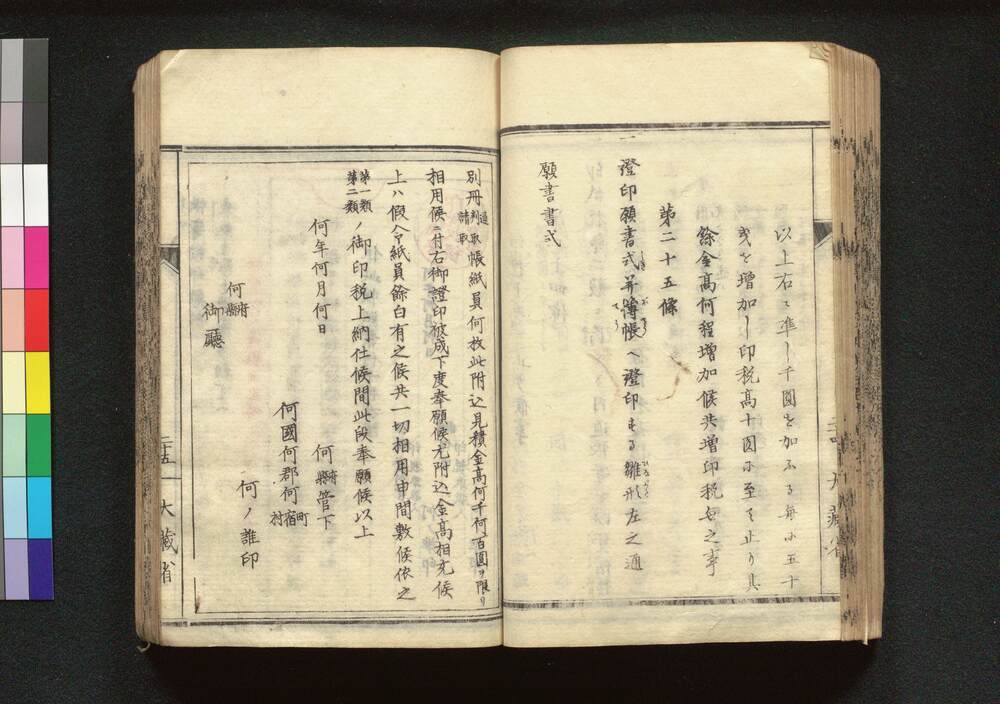 以上右ニ準シ千圓を加ふる每に五十
戔を增加し印税高十圓に至て止り其
餘金高何程增加候共增印税無之事
第二十五條
一證印願書式并簿帳へ證印する雛形左之通
願書書式
別冊通判取請取帳紙員何枚此附込見積金高何千何百圓ヲ限リ
相用候ニ付右御證印被成下度奉願候尤附込金高相充候
上ハ假令紙員餘白有之候共一切相用申間敷候依之
第一類第二類ノ御印税上納仕候間此段奉願候以上
何年何月何日
何府縣管下
何國何郡何町宿村
何ノ誰印
何府縣
御廳
二十五
大藏省